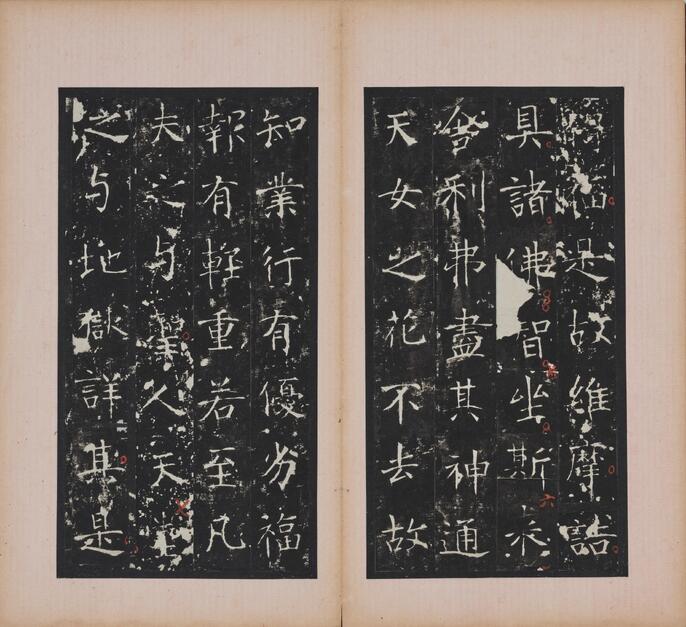 福是故維摩詰
具諸佛智坐斯来
舎利弗盡其神通
天女之花不去故
知業行有優劣福
報有輕重若至凡
夫之与聖人天堂
之与地獄詳其是